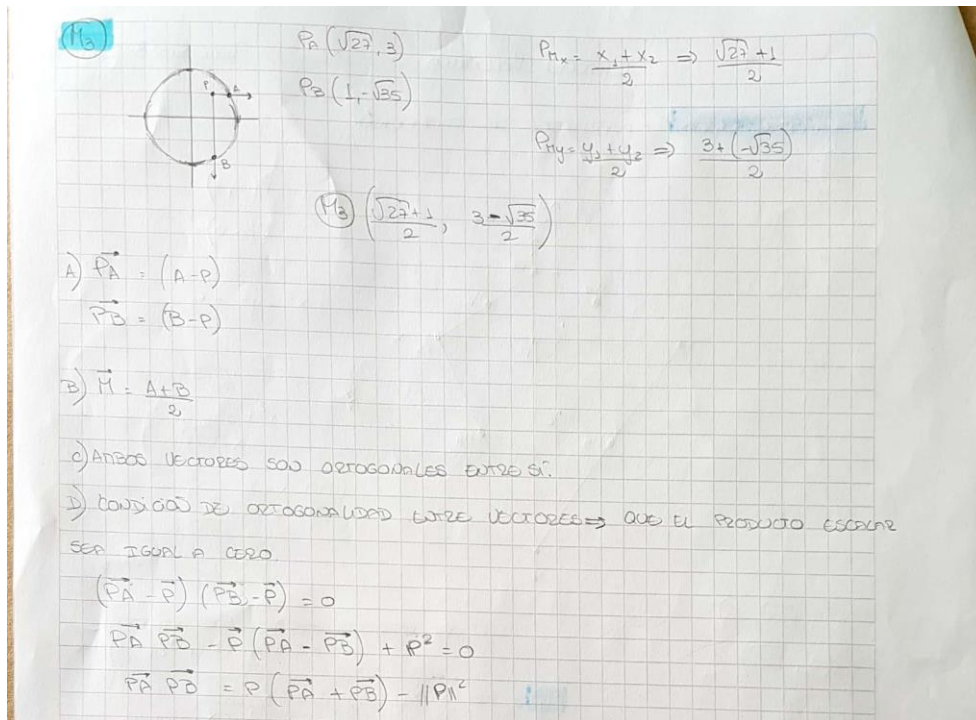 M₃
P_A (√27, 3)
P_B (1, -√35)
P_Mx = (x₁ + x₂)/2 ⇒ (√27 + 1)/2
P_My = (y₁ + y₂)/2 ⇒ (3 + (-√35))/2
P A
B
M₃ ((√27 + 1)/2, (3 - √35)/2)
A) →PA = (A - P)
→PB = (B - P)
B) →M = (A + B)/2
C) AMBOS VECTORES SON ORTOGONALES ENTRE SÍ.
D) CONDICIÓN DE ORTOGONALIDAD ENTRE VECTORES ⇒ QUE EL PRODUCTO ESCALAR
SEA IGUAL A CERO.
(→PA - →P) (→PB - →P) = 0
→PA →PB - →P (→PA - →PB) + P² = 0
→PA →PB = P (→PA + →PB) - ||P||²